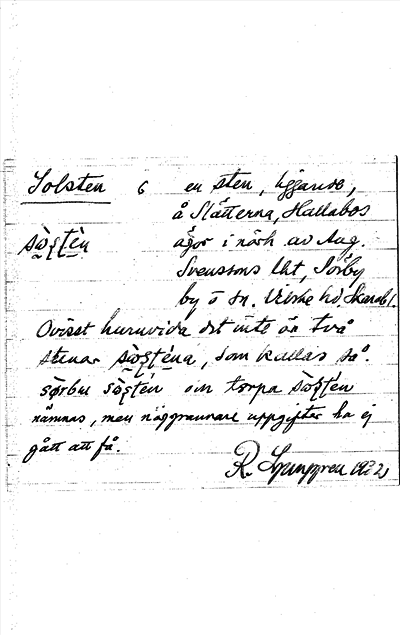 Solsten 6 en sten, liggande,
å Slätterna, Hallabos
sol̥stèn ägor i närh av Aug.
Svenssons lht, Sörby
by o sn. Vilske hd. Skarabl.
Ovisst huruvida det inte är två
stenar , som kallas så.
sørbu om torpa
nämnas, men noggrannare uppgifter ha ej
gått att få.
R. Ljunggren 1932